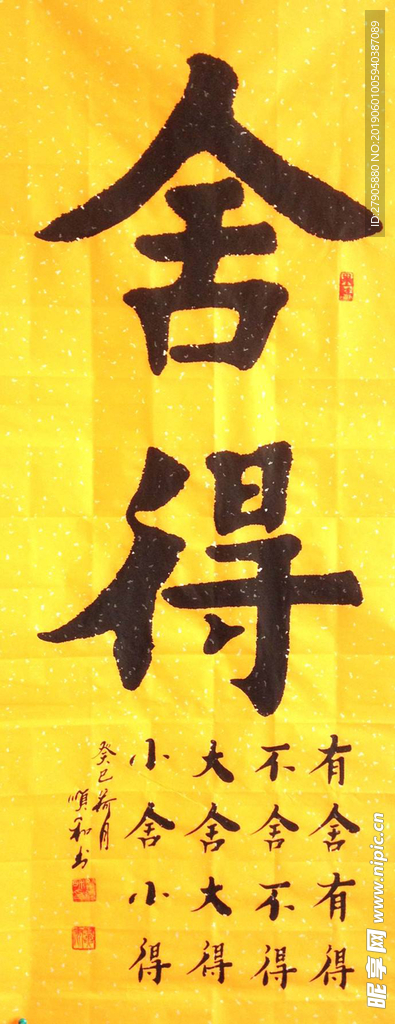 舍
得
有舍有得
不舍不得
大舍大得
小舍小得
癸巳荷月
順和书
ID:27905880 NO:20190601005940387089
昵享网 www.nipic.cn